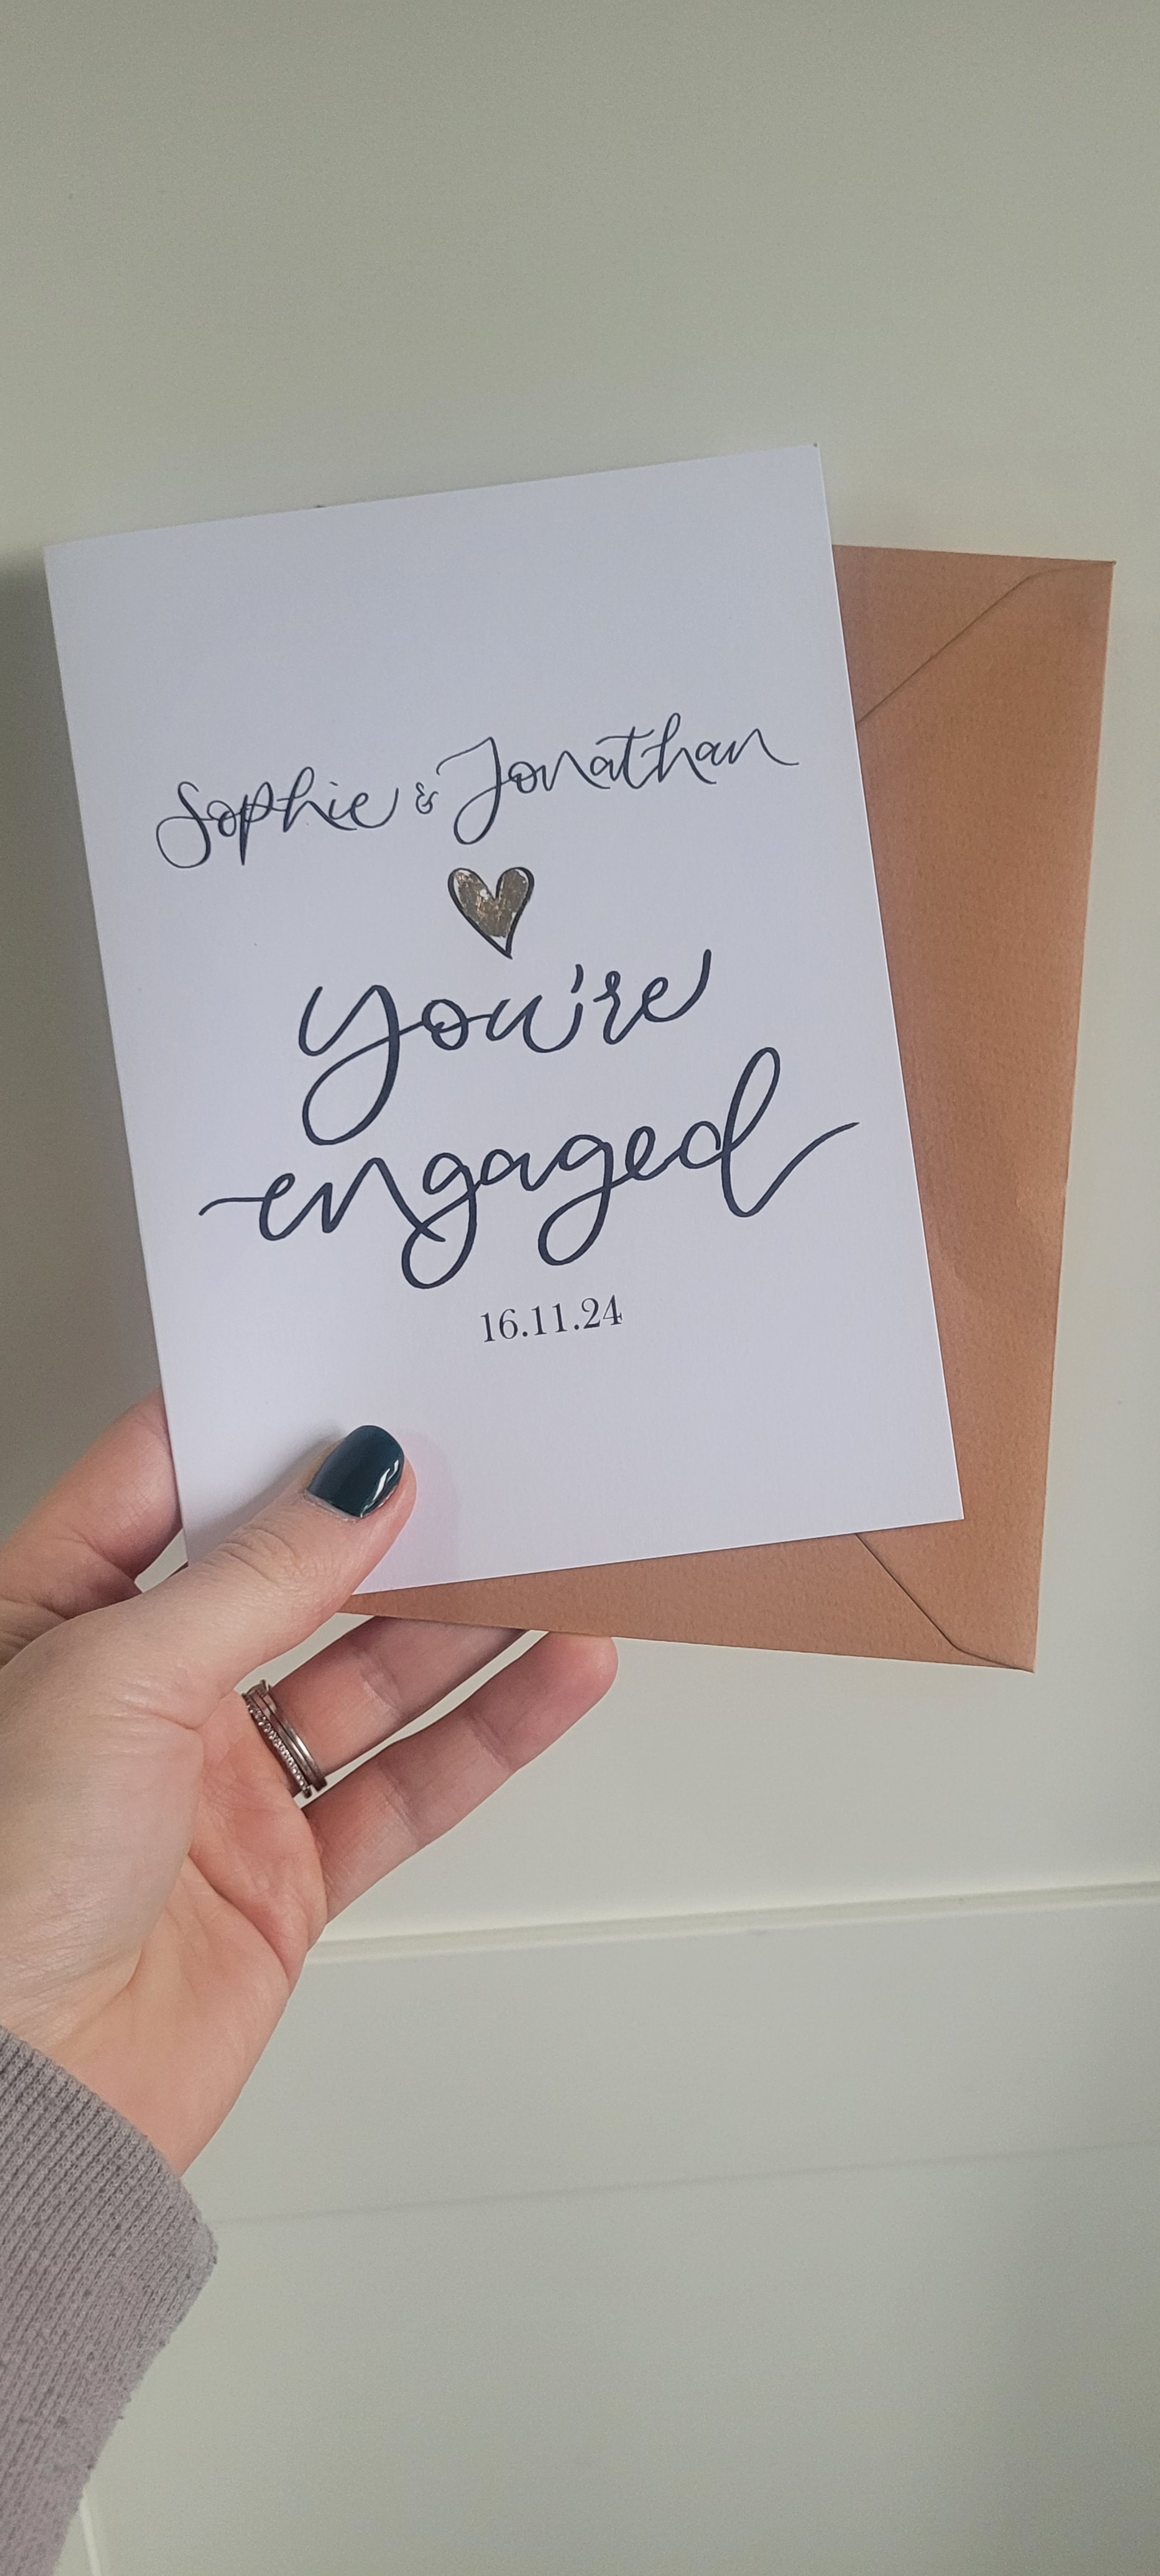 Sophie & Jonathan
you're
engaged
16.11.24